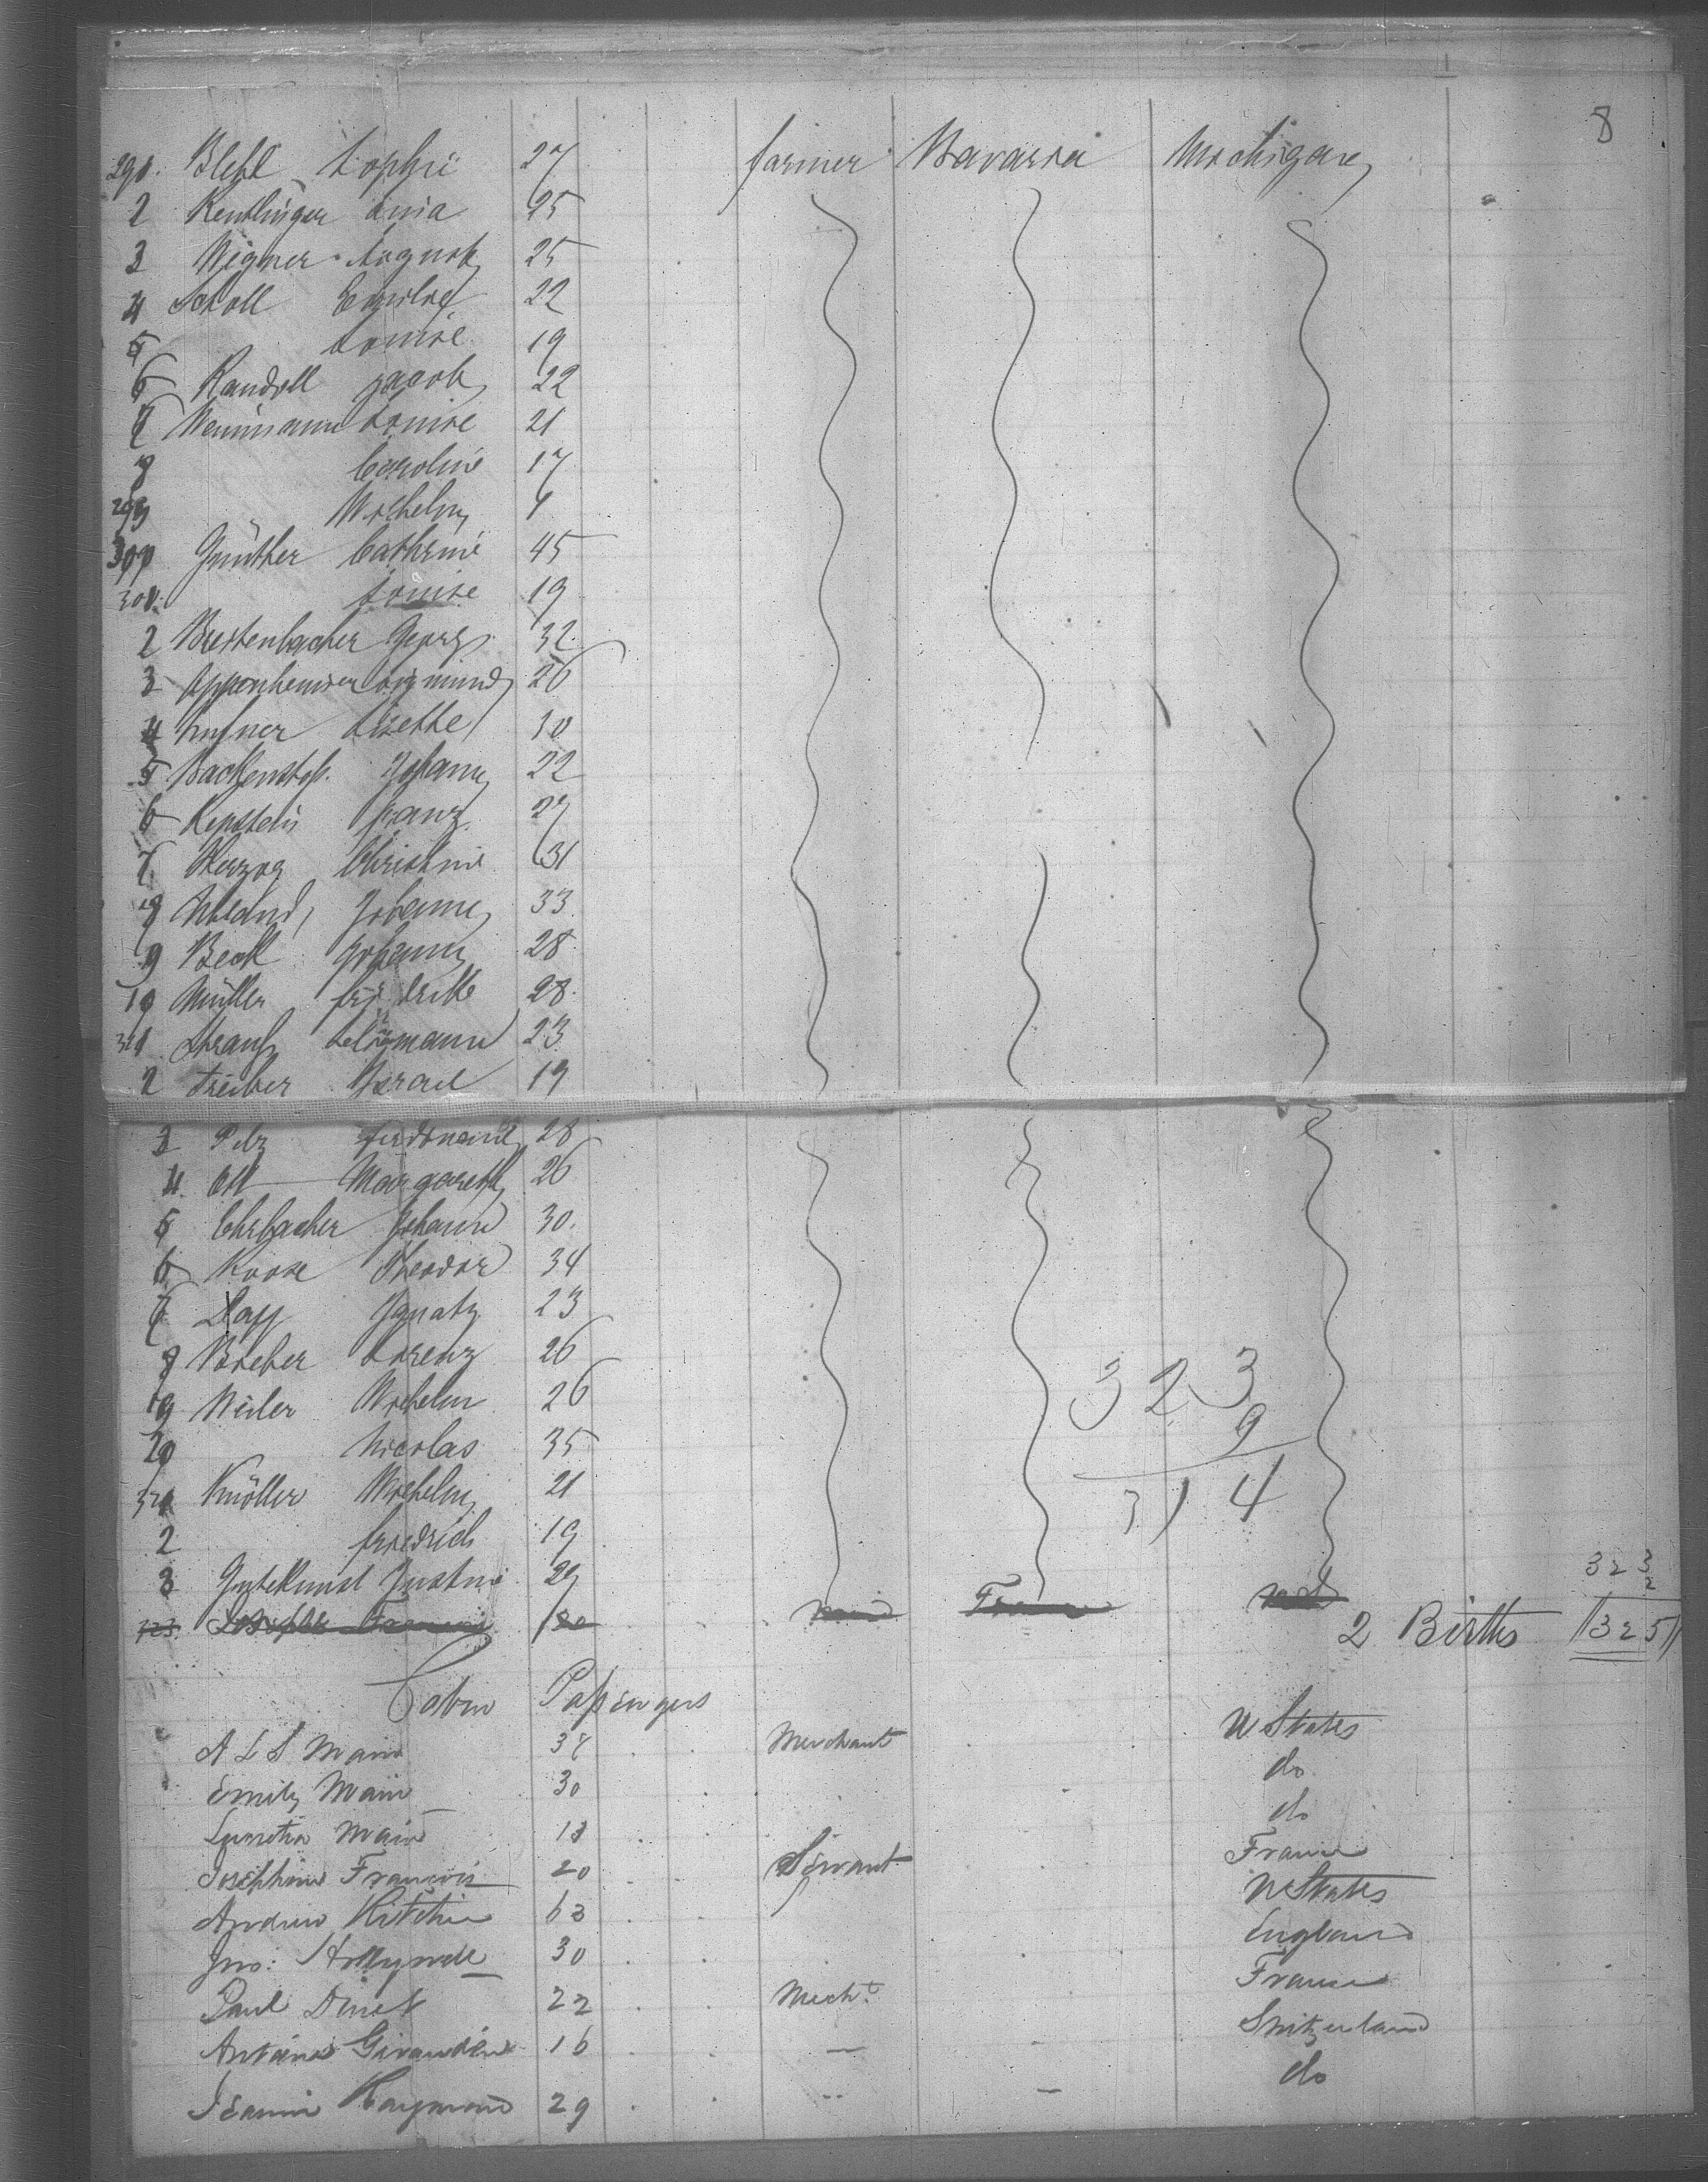 8
291. Blehl Sophie 27 farmer Bavaria Michigan
2 Reutlinger Ania 25
3 Wegner August 25
4 Scholl Emilie 22
5 Louise 19
6 Randoll Jacob 22
7 Wennmann Louise 21
8 Caroline 17
299 Wilhelm
300 Günther Cathrine 45
301. Louise 19
2 Breitenbacher Georg 32
3 Oppenheimer Sigmund 26
4 Lisette 30
5 Johann 22
6 Kepstein Franz 27
7 Herzog Christine 31
8 Uhland Johann 33
9 Beck Johann 28
10 Müller 28
311 Strauß 23
2 Treiber Israel 19
3 Pelz Ferdinand 28
4 Ott Margareth 26
5 Johann 30.
6 Koose Theodor 34
7 Ignatz 23
8 Lorenz 26
19 Weiler Wilhelm 26
20 Nicolas 35
321 Knöller Wilhelm 21
2 Friedrich 19
3 Gutekunst Justine 29
323
9
314
323
2
323. 20 2 Births 325
Cabin Passengers
A L S Main Merchant U States
Emily Main 30 do
Lucretia Main do
Josephine François 20 Servant France
Andrew Ritchie 63 U States
Jno: Hollywell 30 England
Paul 22 Mercht. France
Giraudin 16 — - Switzerland
Raymond 29 - — do